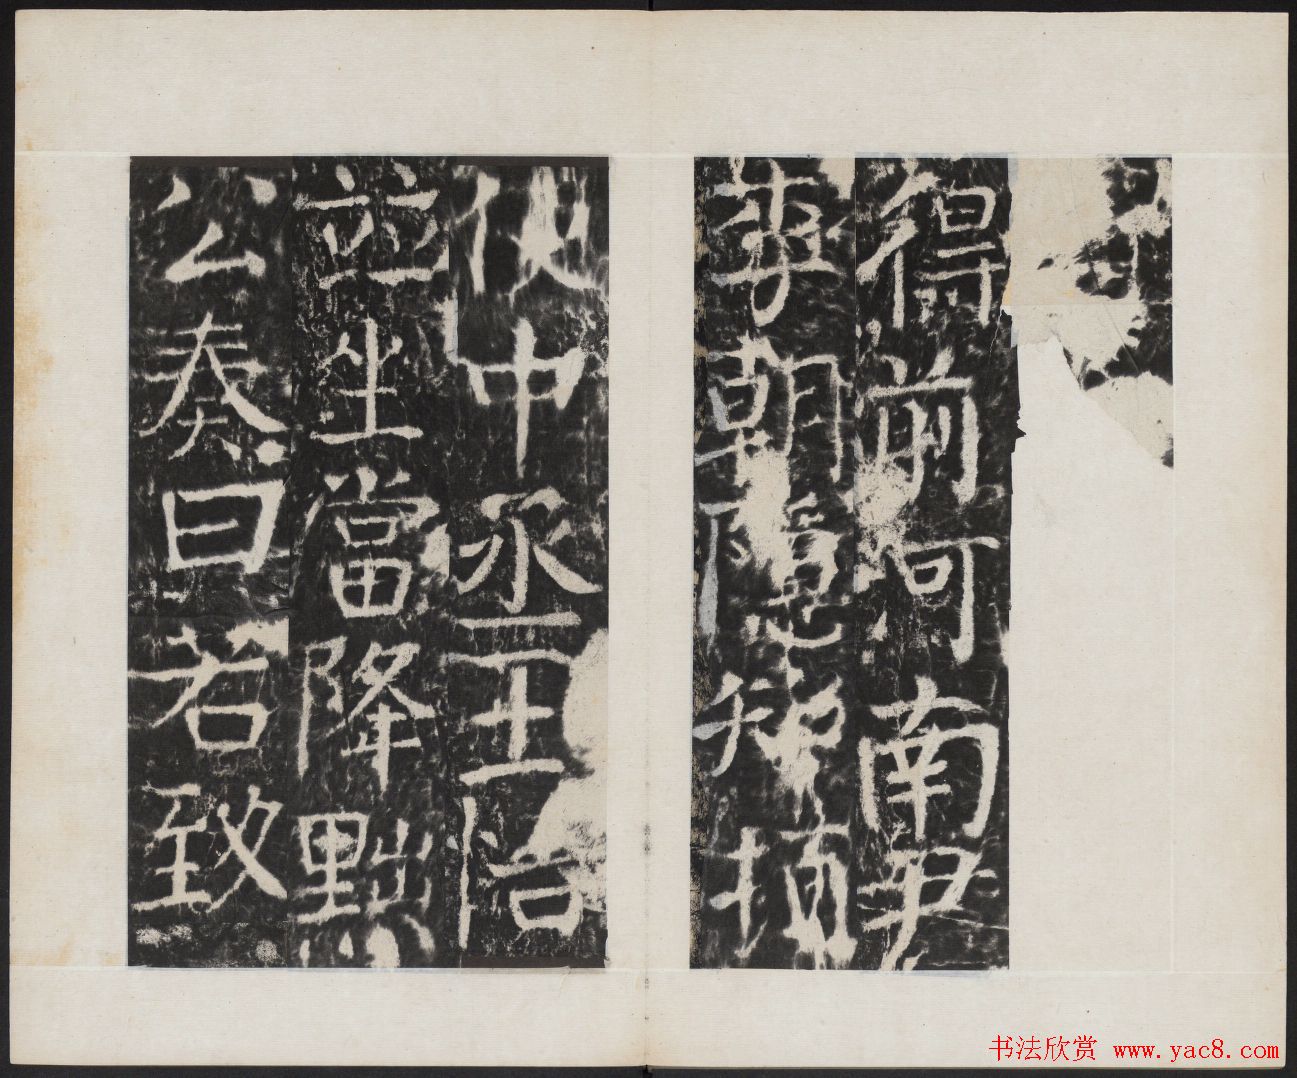 得前河南尹
李朝隱知頓
使中丞王怡
並坐當降黜
公奏曰若致
书法欣赏 www.yac8.com